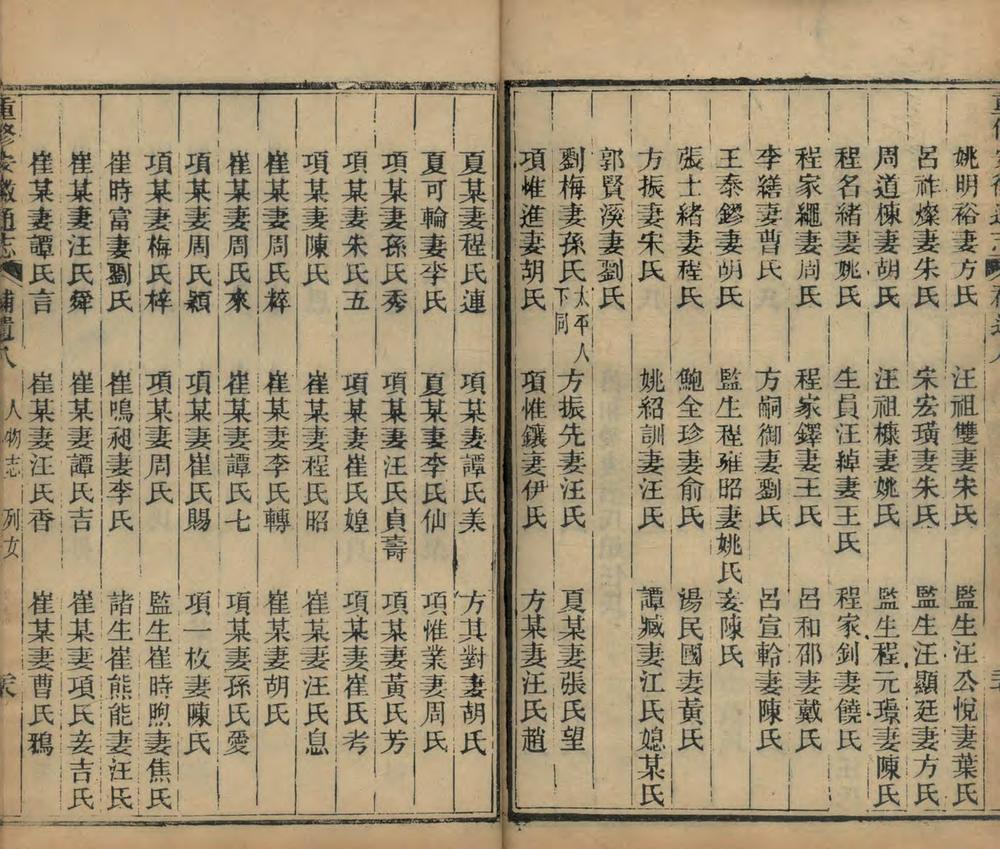 姚明裕妻方氏 汪祖雙妻宋氏 監生汪公悅妻葉氏
呂祚燦妻朱氏 宋宏璜妻朱氏 監生汪顯廷妻方氏
周道棟妻胡氏 汪祖槺妻姚氏 監生程元璟妻陳氏
程名緒妻姚氏 生員汪綽妻王氏 程家釗妻饒氏
程家繩妻周氏 程家鐸妻王氏 呂和邵妻戴氏
李繕妻曹氏 方嗣御妻劉氏 呂宣輪妻陳氏
王泰鏐妻胡氏 監生程雍昭妻姚氏妾陳氏
張士緒妻程氏 鮑全珍妻俞氏 湯民國妻黃氏
方振妻宋氏 姚紹訓妻汪氏 譚臧妻江氏媳某氏
郭賢溪妻劉氏
劉梅妻孫氏太平人下同 方振先妻汪氏 夏某妻張氏望
項惟進妻胡氏 項惟鑲妻伊氏 方某妻汪氏趙
夏某妻程氏連 項某妻譚氏美 方其對妻胡氏
夏可輪妻李氏 夏某妻李氏仙 項惟業妻周氏
項某妻孫氏秀 項某妻汪氏貞壽 項某妻黃氏芳
項某妻朱氏五 項某妻崔氏媓 項某妻崔氏考
項某妻陳氏 崔某妻程氏昭 崔某妻汪氏息
崔某妻周氏梓 崔某妻李氏轉 崔某妻胡氏
崔某妻周氏來 崔某妻譚氏七 項某妻孫氏愛
項某妻周氏穎 項某妻崔氏賜 項一枚妻陳氏
項某妻梅氏梓 項某妻周氏 監生崔時煦妻焦氏
崔時富妻劉氏 崔鳴昶妻李氏 諸生崔熊能妻汪氏
崔某妻汪氏舜 崔某妻譚氏吉 崔某妻項氏妾吉氏
崔某妻譚氏言 崔某妻汪氏香 崔某妻曹氏鴉
重修安徽通志 補遺八 人物志 列女